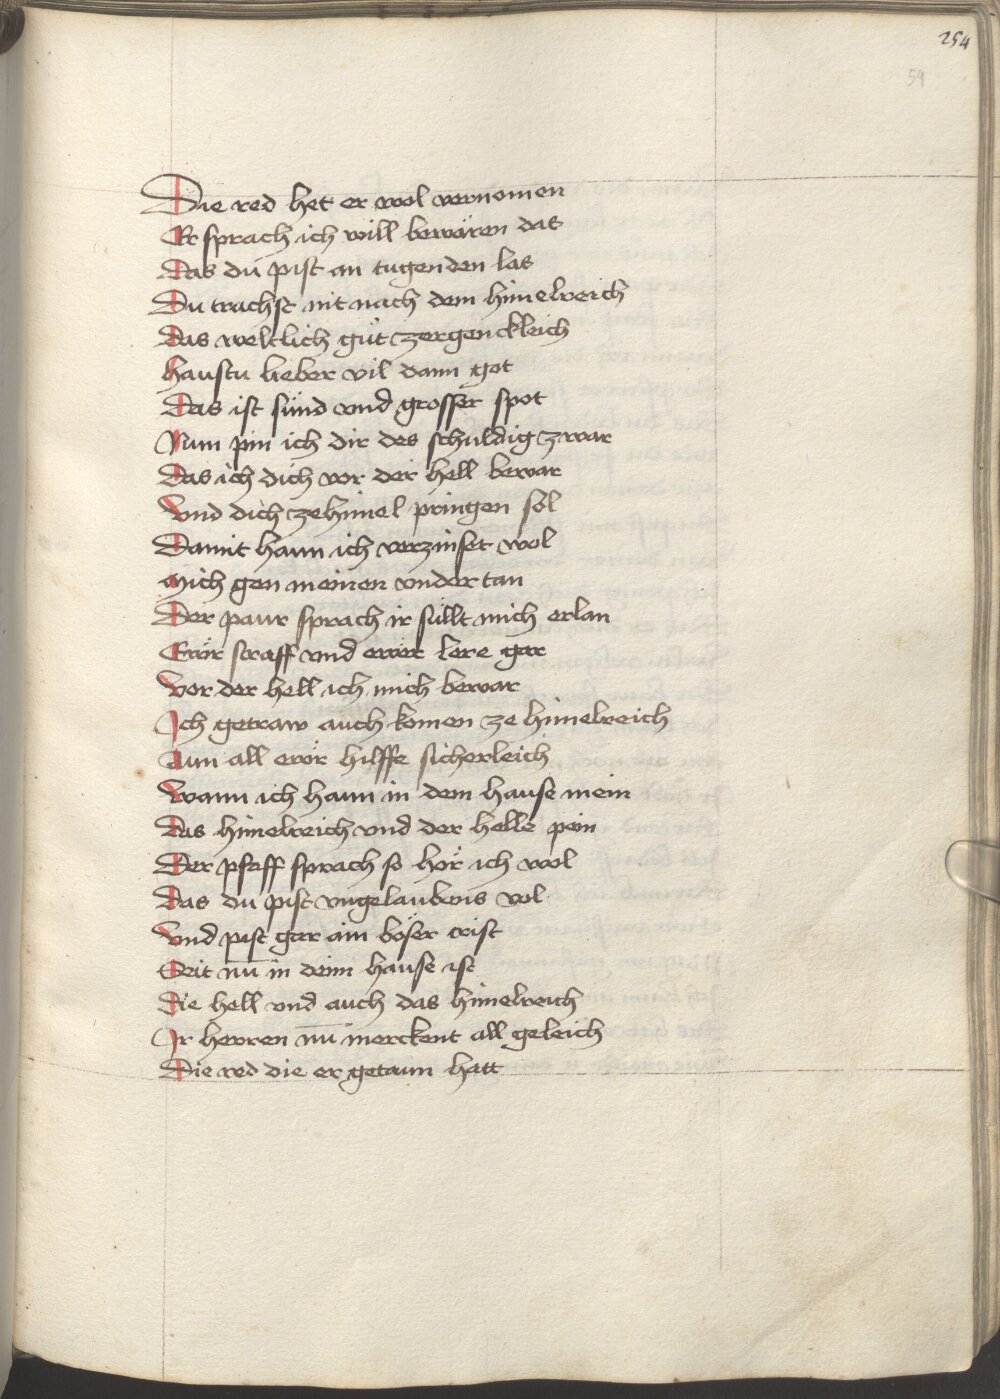 254
59
Die red het er wol vernomen
Er sprach ich will bewären das
Das du pist an tugenden las
Du trachst nit nach dem himelreich
Das weltlich gůt zergencklich
Haustu lieber vil dann got
Das ist sünd vnd grosser spot
Nun pin ich dir des schuldig zwar
Das ich dich vor der hell bewar
Vnd dich ze himel pringen sol
Damit haun ich verzinset wol
Mich gen meinen vnder tan
Der paur sprach ir süllt mich erlan
Ewr straff vnd ewr lere gar
Vor der hell ich mich bewar
Ich getraw auch komen ze himelreich
Aun all ewr hilffe sicherleich
Wann ich haun in dem hause mein
Das himelreich vnd der helle pein
Der pfaff sprach so hör ich wol
Das du pist vngelaubens vol
Vnd pist gar ain böser crist
Seit nū in deim hause ist
Die hell vnd auch das himelreich
Ir herren nū merckent all geleich
Die red die er getaun hatt